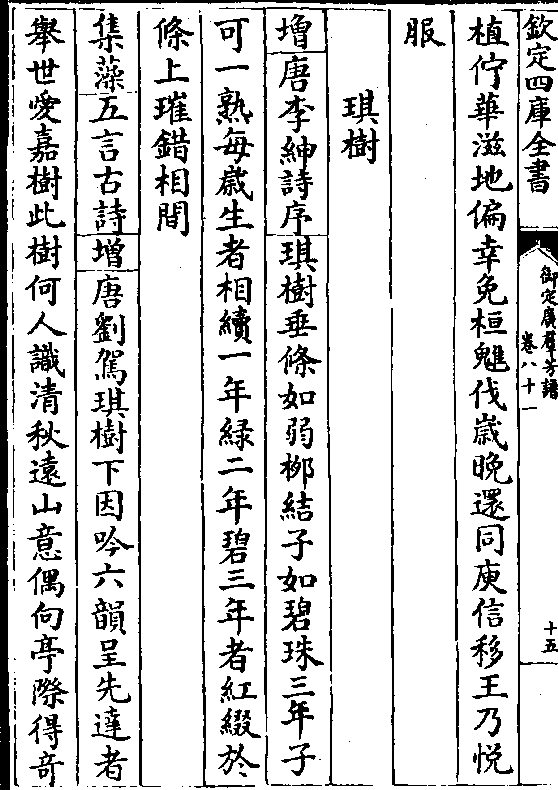 欽定四庫全書
御定廣羣芳譜
卷八十一
十五
植佇華滋地偏幸免桓魋伐歲晚還同庾信移王乃悅
服
琪樹
增唐李紳詩序琪樹垂條如弱栁結子如碧珠三年子
可一熟每歲生者相續一年緑二年碧三年者紅綴於
條上璀錯相間
集藻五言古詩增唐劉駕琪樹下因吟六韻呈先達者
舉世愛嘉樹此樹何人識清秋遠山意偶向亭際得奇